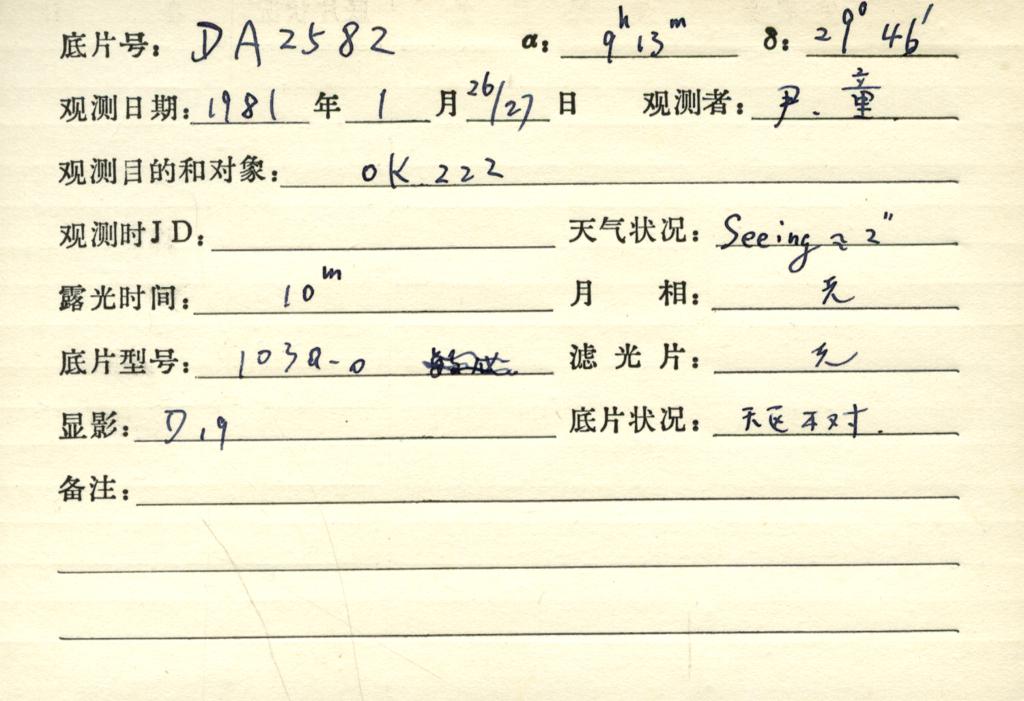 底片号: DA2582 α: 9h 13m δ: 29° 46′
观测日期: 1981 年 1 月 26/27 日 观测者: 尹. 童
观测目的和对象: OK 222
观测时JD:
天气状况: Seeing ≈ 2″
露光时间: 10m
月 相: 无
底片型号: 103a-o
滤光片: 无
显影: D19
底片状况: 天区不对.
备注: